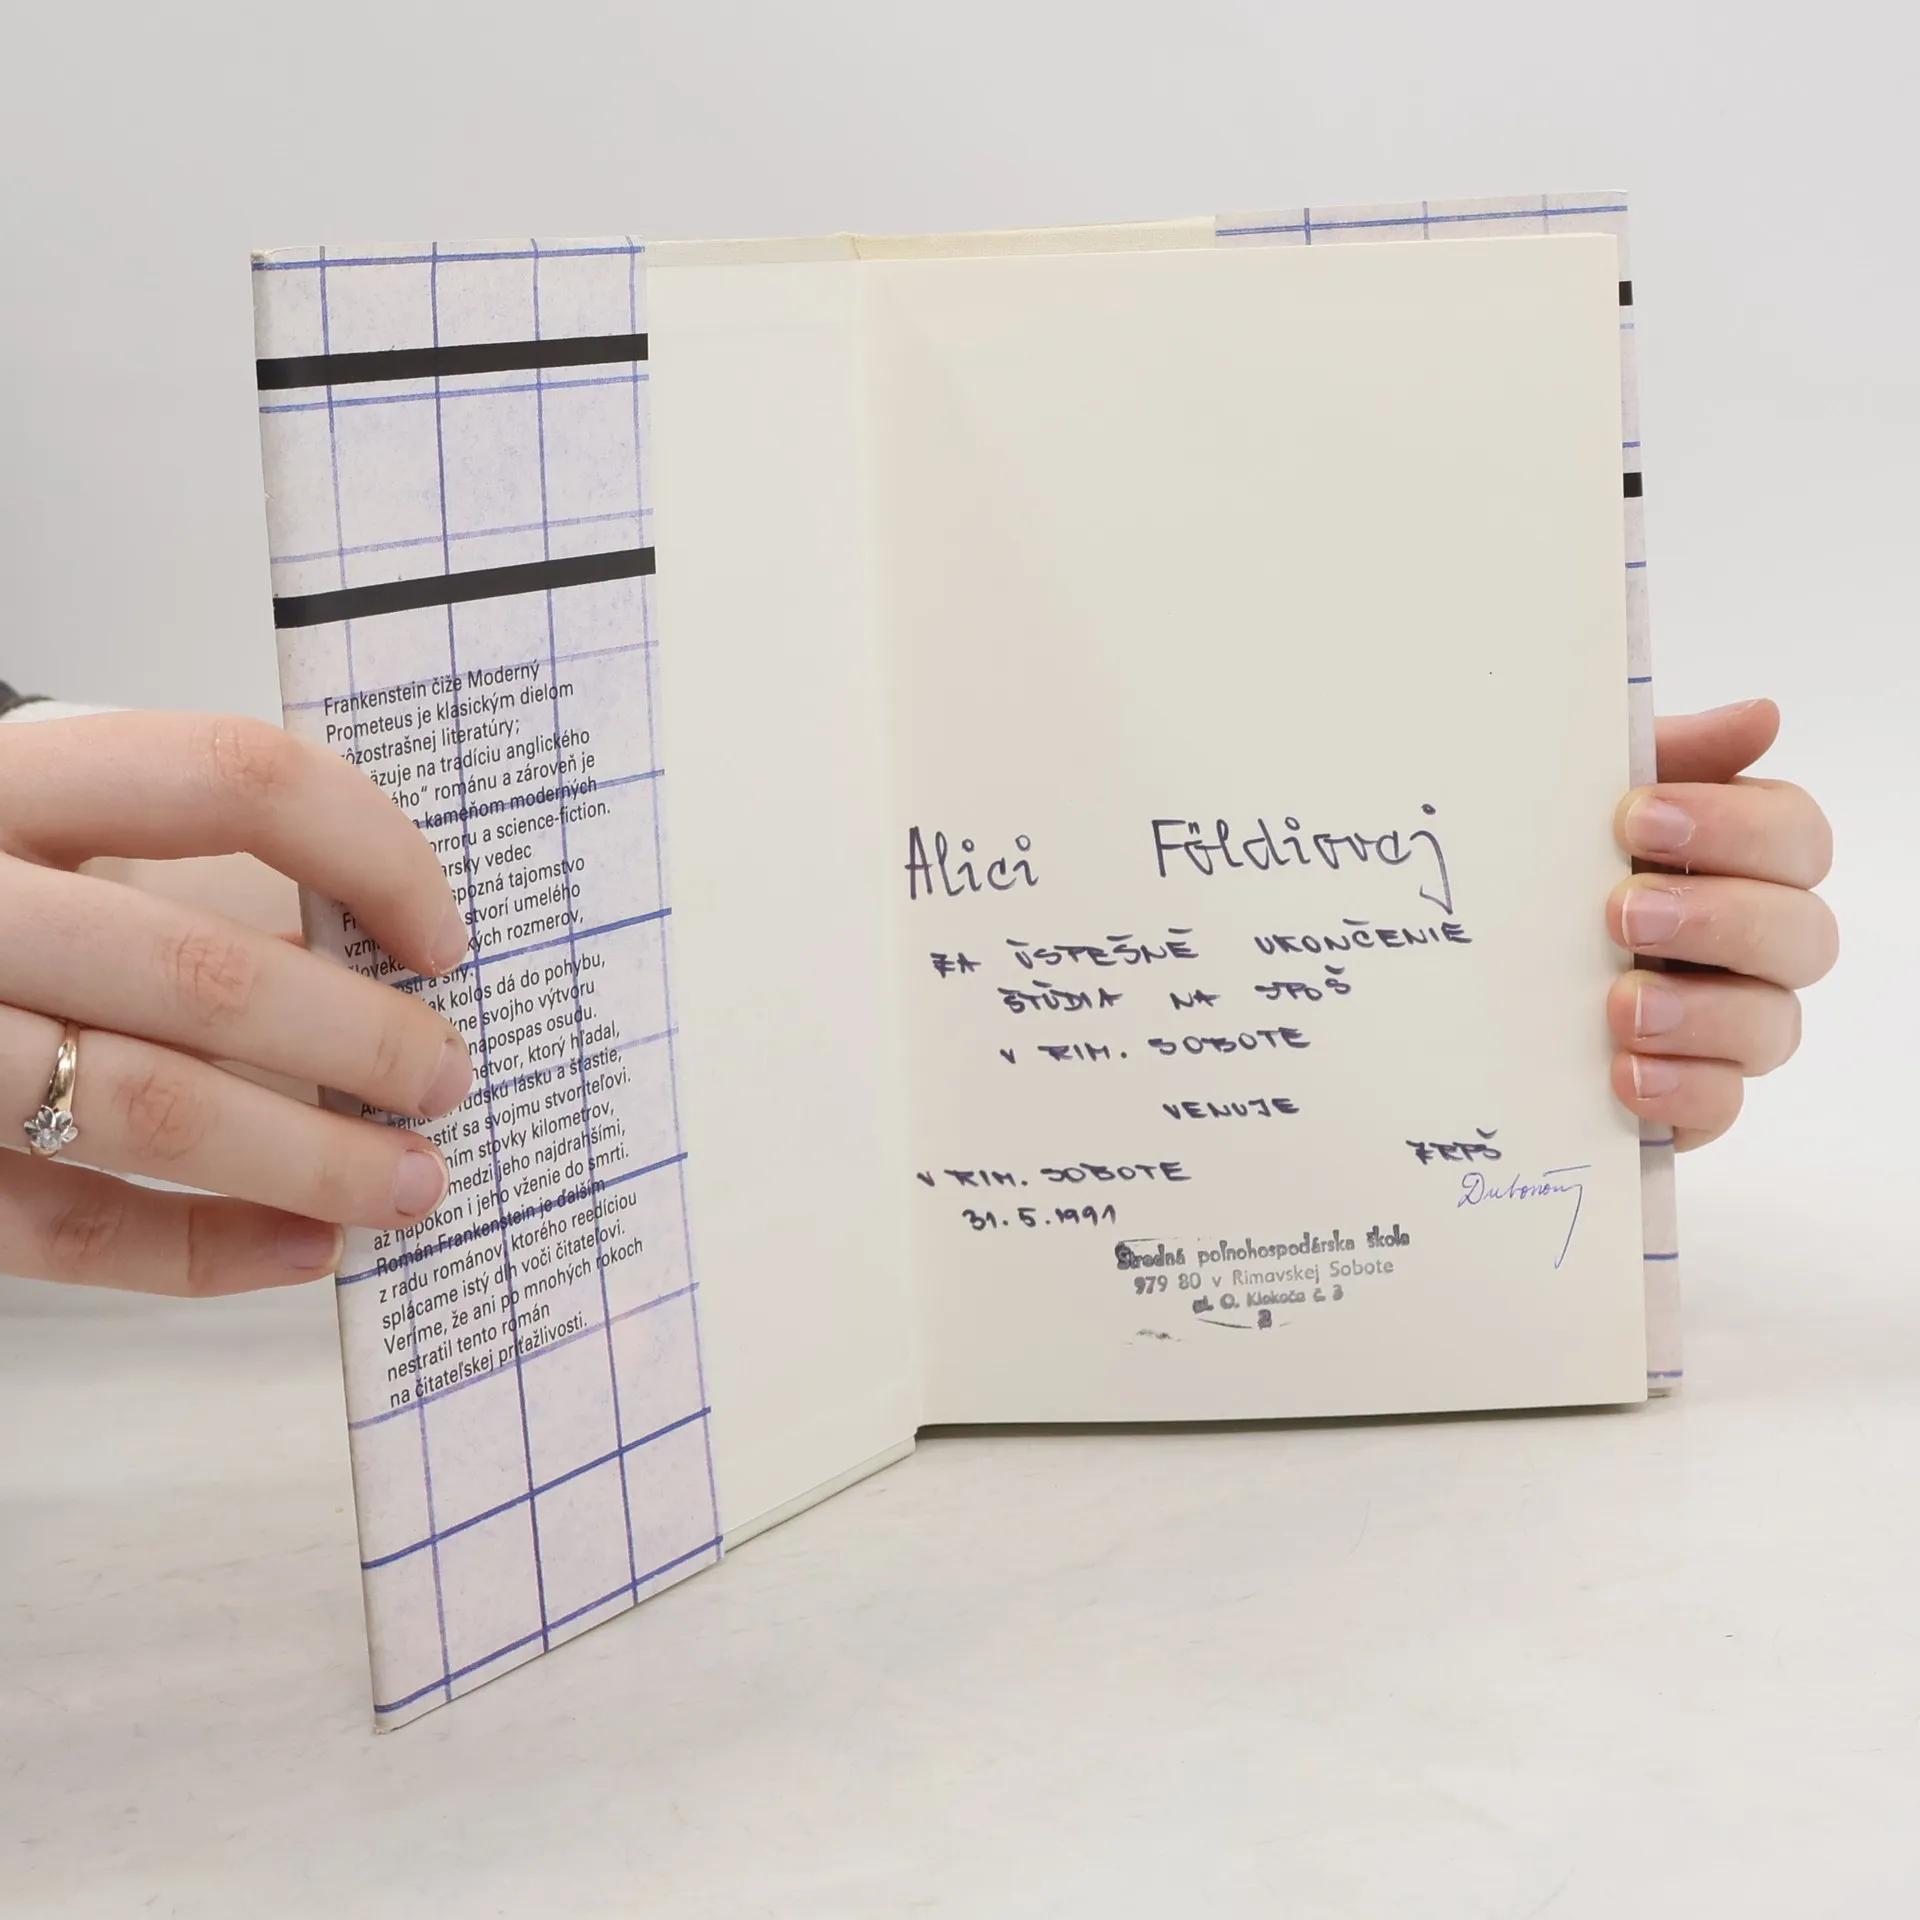 Frankenstein čiže Moderný
Prometeus je klasickým dielom
ôzostrašnej literatúry;
äzuje na tradíciu anglického
ého“ románu a zároveň je
kameňom moderných
orroru a science-fiction.
arsky vedec
spozná tajomstvo
stvorí umelého
kých rozmerov,
sti a sily.
ak kolos dá do pohybu,
kne svojho výtvoru
napospas osudu.
netvor, ktorý hľadal,
ľudskú lásku a šťastie,
stiť sa svojmu stvoriteľovi.
ním stovky kilometrov,
medzi jeho najdrahšími,
až napokon i jeho vženie do smrti.
Román Frankenstein je ďalším
z radu románov, ktorého reedíciou
splácame istý dlh voči čitateľovi.
Veríme, že ani po mnohých rokoch
nestratil tento román
na čitateľskej príťažlivosti.
Alici Földiovej
ZA ÚSPEŠNÉ UKONČENIE
ŠTÚDIA NA SPOŠ
V RIM. SOBOTE
VENUJE
ZRPŠ
V RIM. SOBOTE
31.5.1991
Stredná poľnohospodárska škola
979 80 v Rimavskej Sobote
ul. O. Klokoča č. 3
2